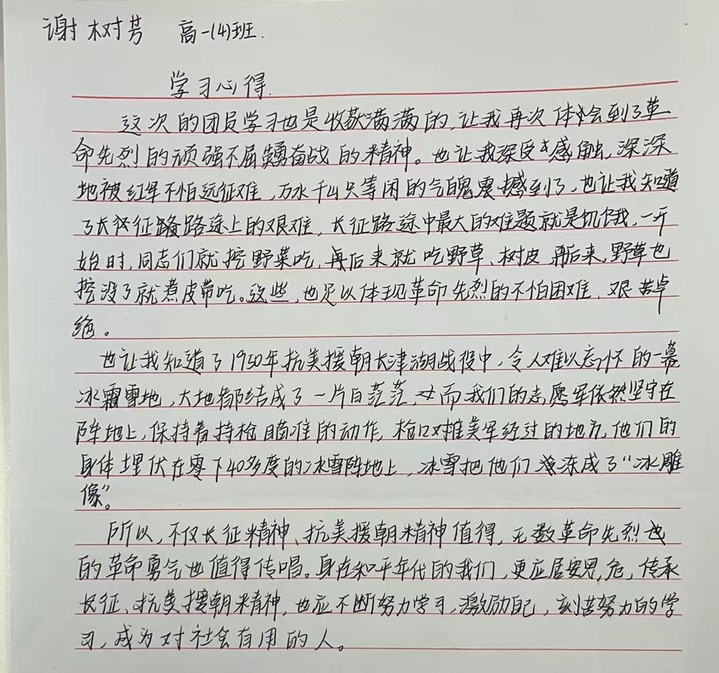 谢树芳 高一(4)班.
学习心得.
这次的团员学习也是收获满满的,让我再次体会到了革
命先烈的顽强不屈奋战的精神。也让我深受感触,深深
地被红军不怕远征难,万水千山只等闲的气魄震撼到了,也让我知道
了长征路途上的艰难,长征路途中最大的难题就是饥饿,一开
始时,同志们就挖野菜吃,再后来就吃野草,树皮,再后来,野草也
挖没了就煮皮带吃。这些,也足以体现革命先烈的不怕困难、艰苦卓
绝。
也让我知道了1950年抗美援朝长津湖战役中,令人难以忘怀的一幕
冰霜雪地,大地都结成了一片白茫茫,而我们的志愿军依然坚守在
阵地上,保持着持枪瞄准的动作,枪口对推美军经过的地方,他们的
身体埋伏在零下40多度的冰雪阵地上,冰雪把他们冻成了“冰雕
像”。
所以,不仅长征精神、抗美援朝精神值得,无数革命先烈
的革命勇气也值得传唱。身在和平年代的我们,更应居安思危,传承
长征、抗美援朝精神,也应不断努力学习,激励自己,刻苦努力的学
习,成为对社会有用的人。